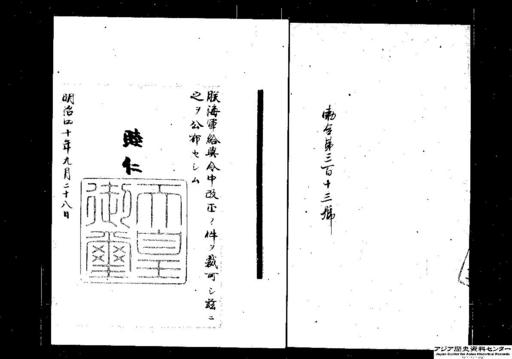 勅令第三百十三號
朕海軍給與令中改正ノ件ヲ裁可シ茲ニ
之ヲ公布セシム
睦仁
天皇
御璽
明治四十年九月二十八日
アジア歴史資料センター
Japan Center for Asian Historical Records